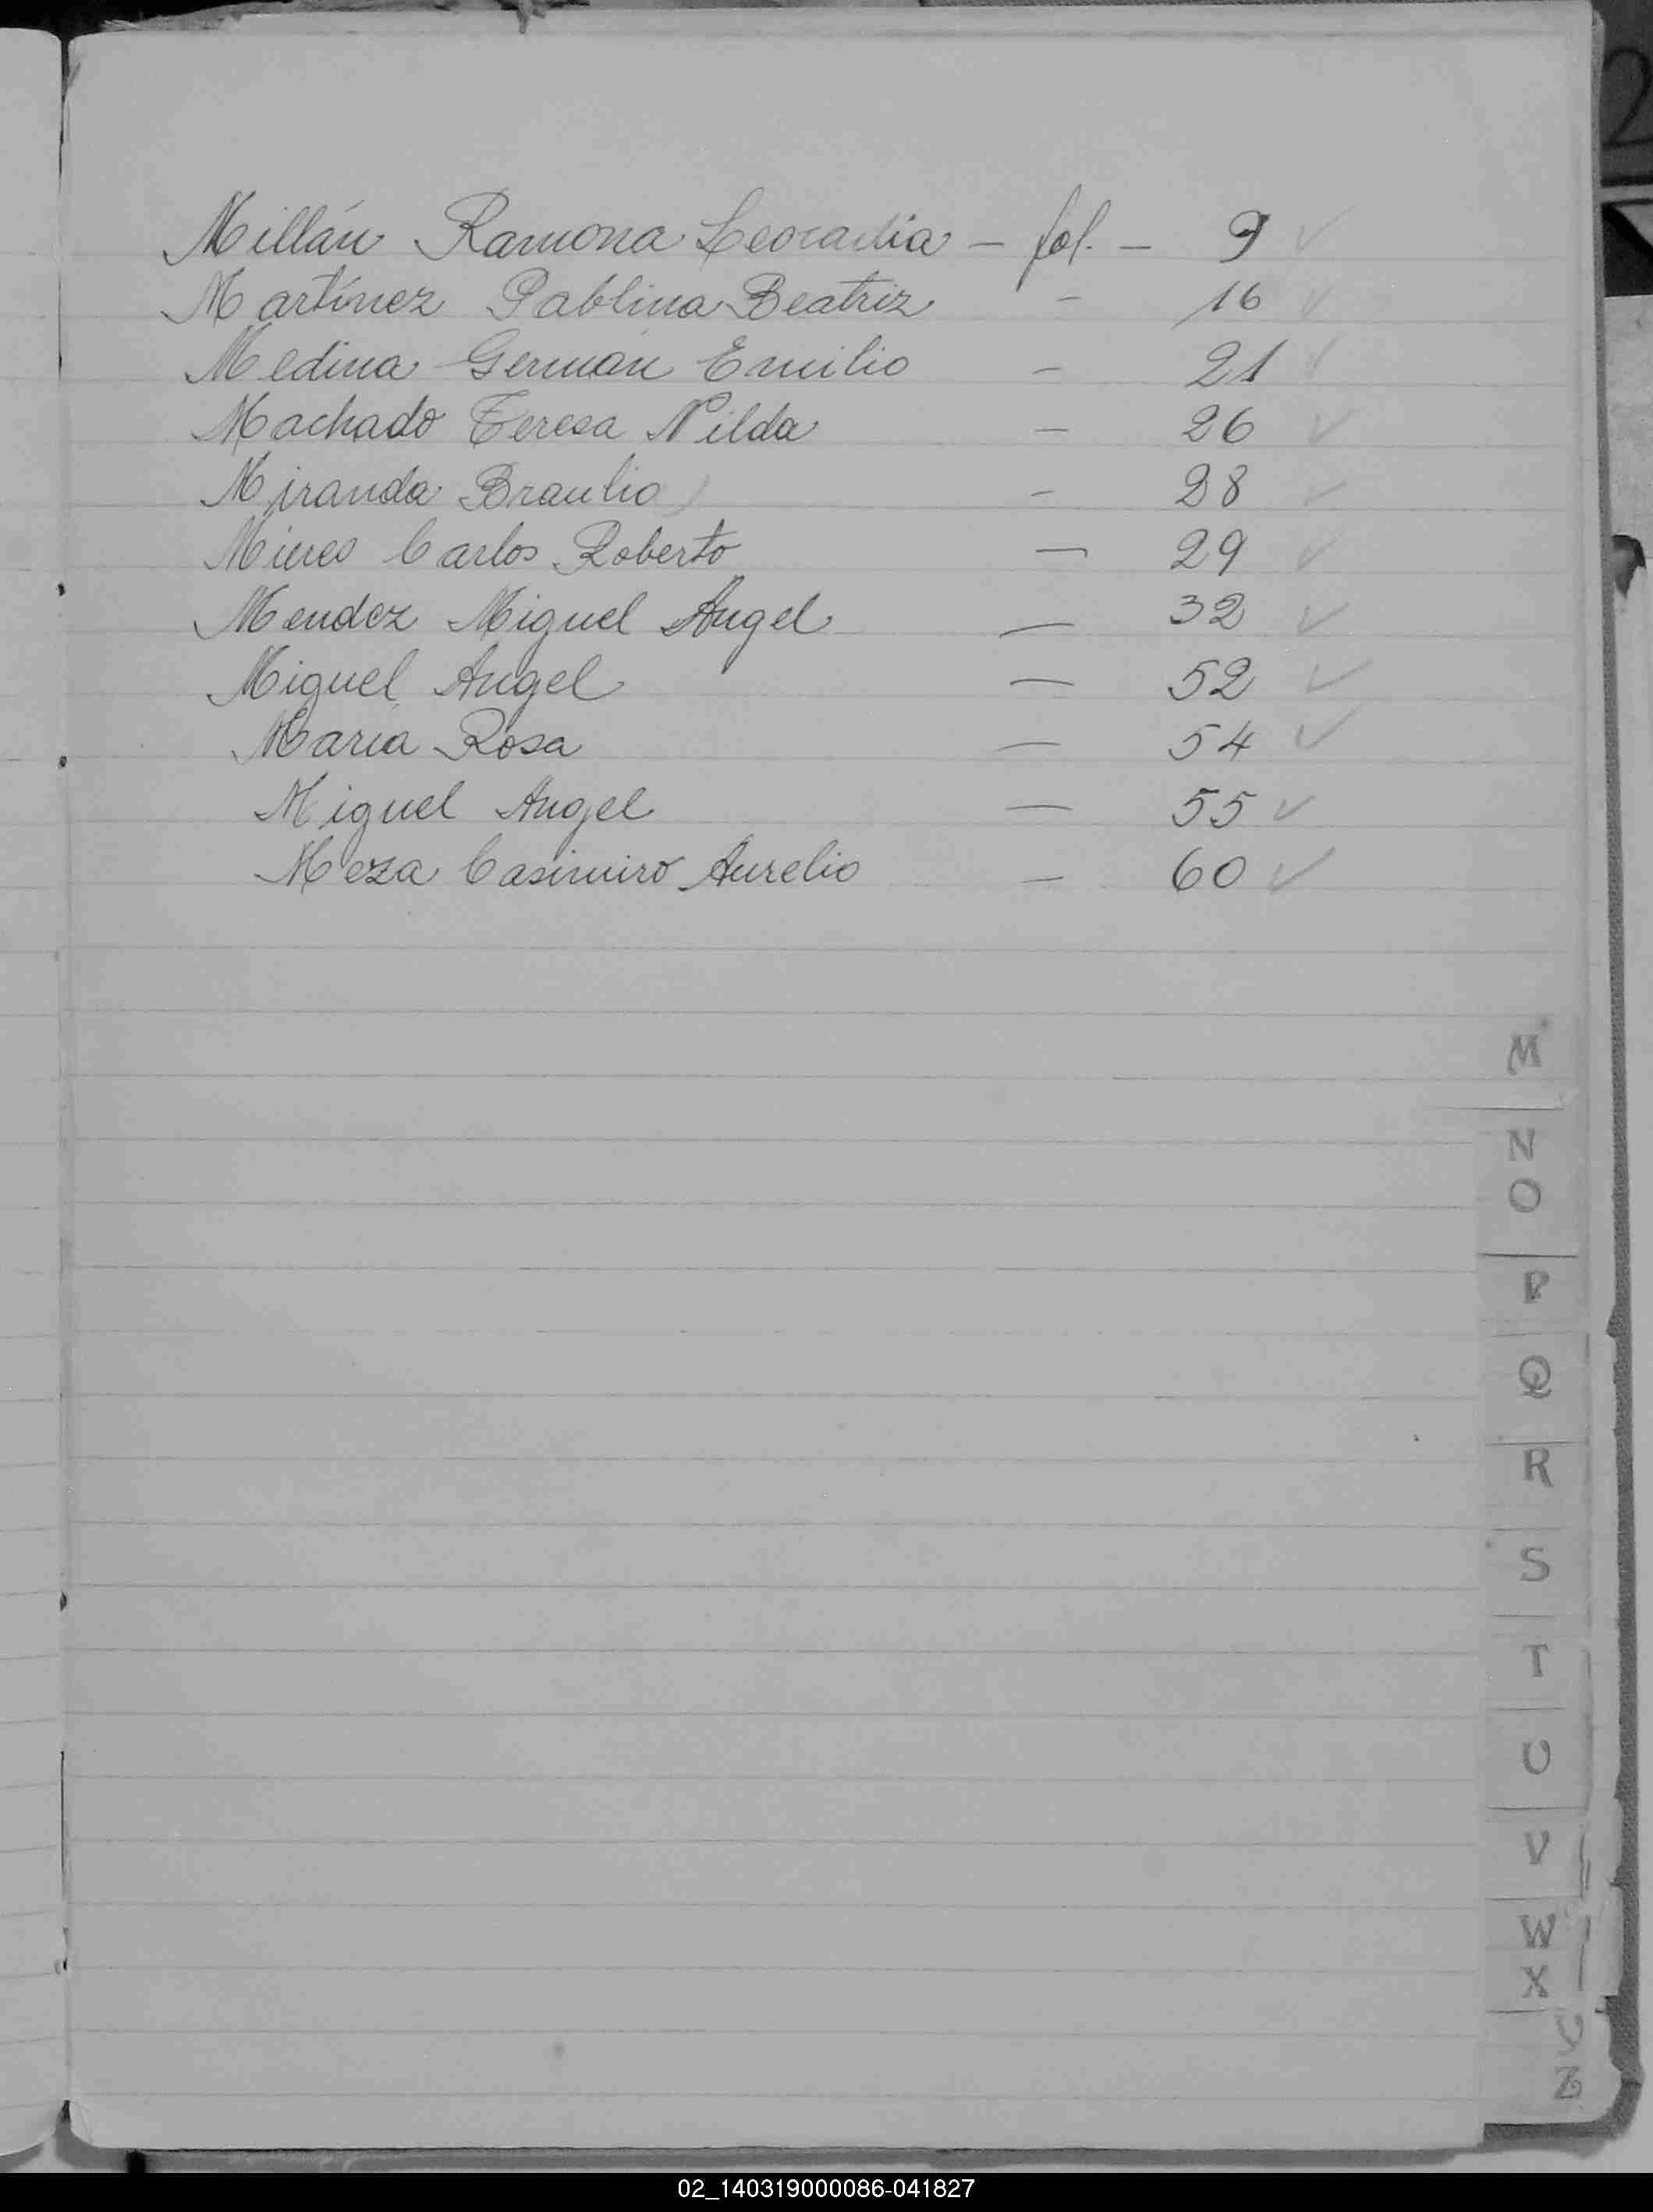 Millán Ramona Leocadia - fol. - 9 ✓
Martínez Pablina Beatriz - 16 ✓
Medina Germán Emilio - 21 ✓
Machado Teresa Nilda - 26 ✓
Miranda Braulio - 28 ✓
Mieres Carlos Roberto - 29 ✓
Mendez Miguel Angel - 32 ✓
Miguel Angel - 52 ✓
María Rosa - 54 ✓
Miguel Angel - 55 ✓
Meza Casimiro Aurelio - 60 ✓
M
N
O
P
Q
R
S
T
U
V
W
X
Z
2
02_140319000086-041827